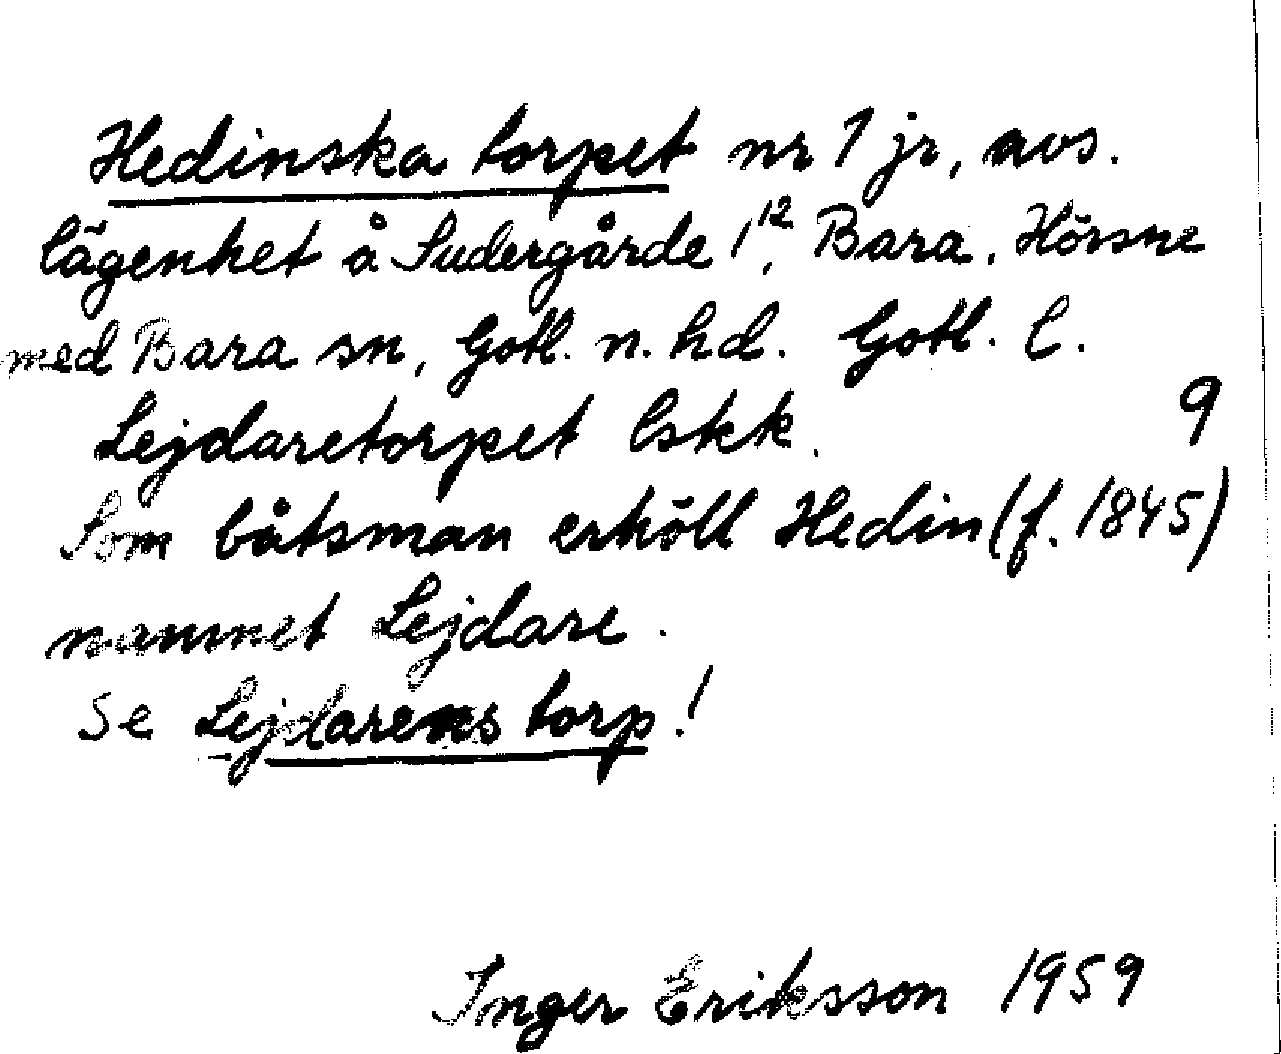 Hedinska torpet nr 1 jr, avs.
lägenhet å Sudergårde 1¹², Bara. Hörsne
med Bara sn, Gotl. n. hd. Gotl. l.
Lejdaretorpet lskk. 9
Som båtsman erhöll Hedin (f. 1845)
namnet Lejdare.
Se Lejdarens torp!
Inger Eriksson 1959